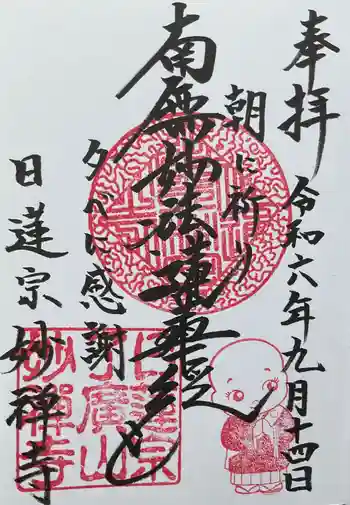 奉拝
令和六年九月十四日
朝に祈り
南無妙法蓮華経
夕べに感謝
日蓮宗 妙禅寺
日蓮宗
廣山
妙禪寺